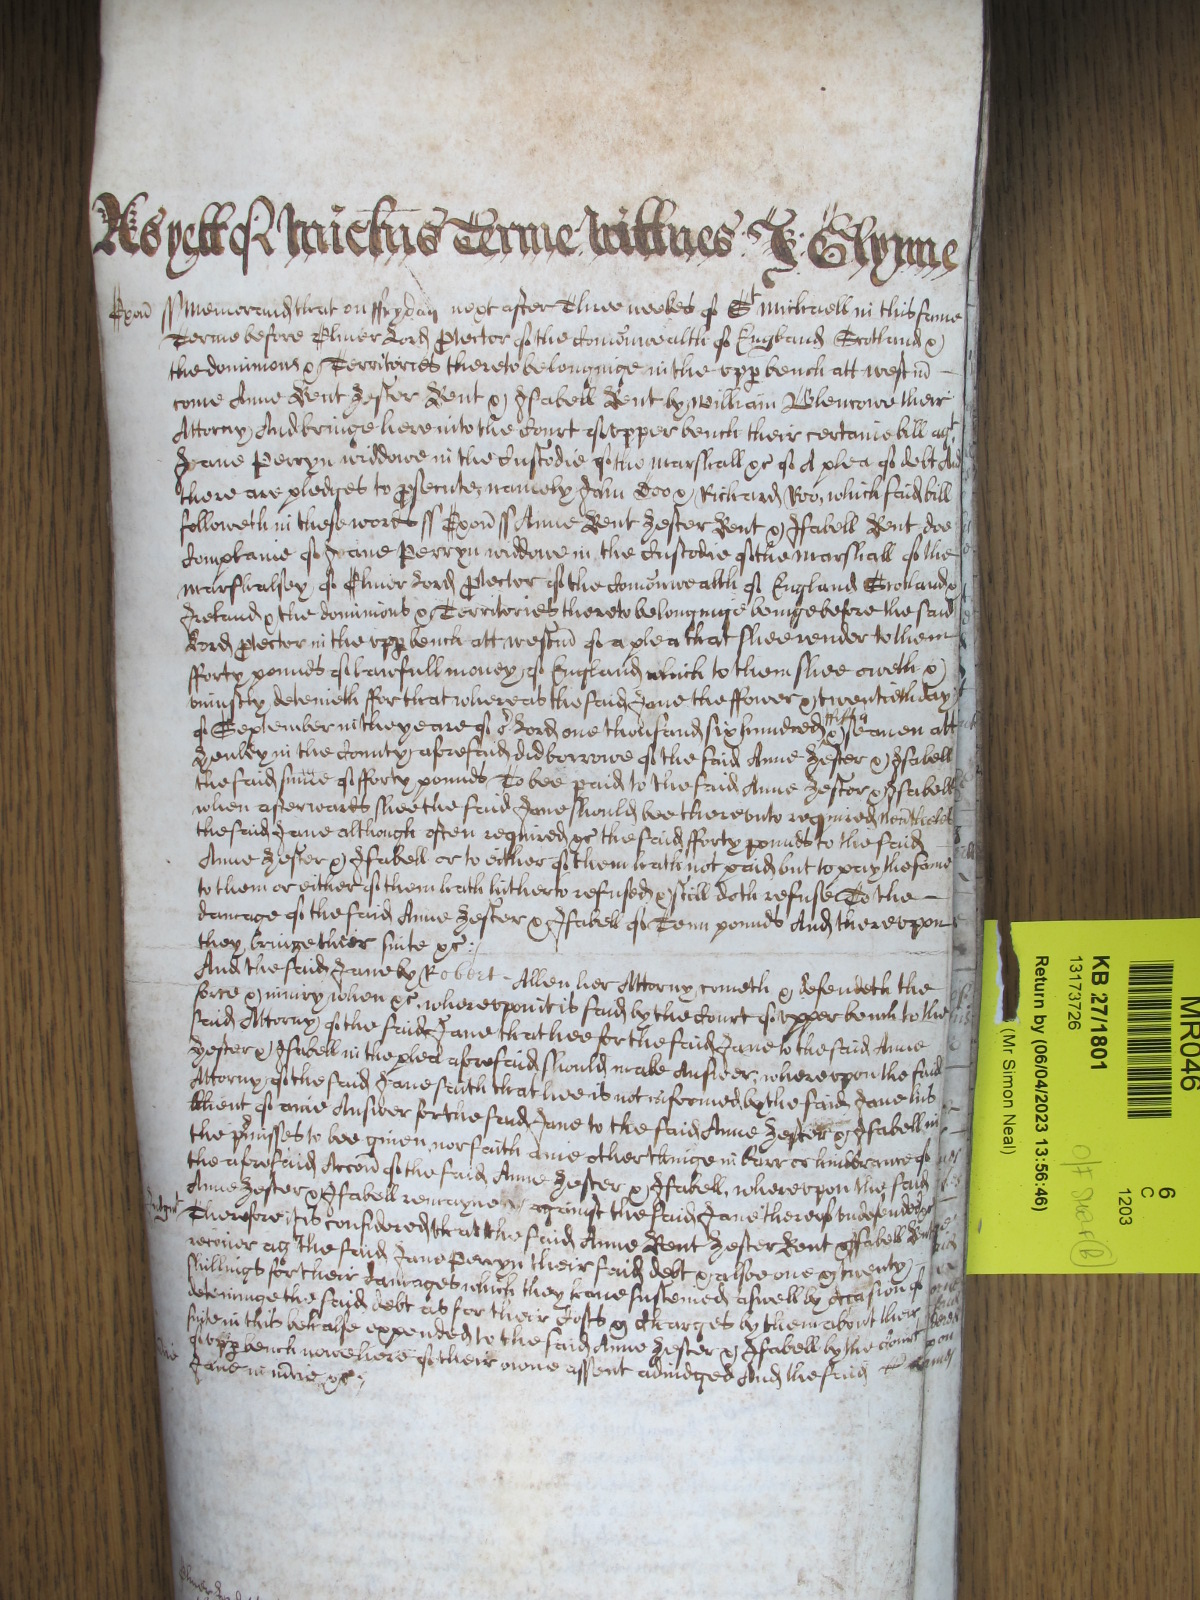 As yett of Mich'us Terme Wittnes J: Glynne
Oxon' ss Memorand' that on ffryday next after Three weekes of St Michaell in this same
Terme before Oliver Lord P'tector of the Com'onwealth of England Scotland &
the dominions & Territories thereto belonginge in the upp' bench att Westm' –
come Anne Kent Hester Kent & Isabell Kent by William Blencowe their
Attorny And bringe here into the Court of upper bench their certaine bill agt
Jane Perryn widdowe in the Custodie of the Marshall &c of A plea of debt And
there are pledges to p'secute namely John Doo & Richard Roo, which said bill
followeth in these words ss Oxon' ss Anne Kent Hester Kent & Isabell Kent doe
Complaine of Jane Perryn widdowe in the Custodie of the Marshall of the
Marshalsey of Oliver Lord P'tector of the Com'onwealth of England Scotland &
Ireland & the dominions & Territories thereto belonginge beinge before the said
Lord P'tector in the upp' bench att Westm' of a plea that shee render to them
fforty pounds of lawfull money of England which to them shee oweth &
uniustly deteineth ffor that whereas the said Jane the ffower & twentieth day
of September in the yeare of or Lord one thousand six hundred fiftie & seaven att
Henley in the County aforesaid did borrowe of the said Anne Hester & Isabell
the said sum'e of fforty pounds To bee paid to the said Anne Hester & Isabell
when afterwards shee the said Jane should bee thereunto required Neu'theles
the said Jane although often required &c the said fforty pounds to the said
Anne Hester & Isabell or to either of them hath not paid but to pay the same
to them or either of them hath hitherto refused & still doth refuse To the –
damage of the said Anne Hester & Isabell of Tenn pounds And thereupon
they bringe their suite &c:
And the said Jane by Robert Allien her Attorny cometh & defendeth the
force & iniury when &c whereupon it is said by the Court of upper bench to the
said Attorny of the said Jane that hee for the said Jane to the said Anne
Hester & Isabell in the plea aforesaid should make Answer, whereupon the said
Attorny of the said Jane saith that hee is not informed by the said Jane his
Client of anie Answer for the said Jane to the said Anne Hester & Isabell in
the p'misses to bee given nor saith anie other thinge in barr or hinderance of
the aforesaid Accon' of the said Anne Hester & Isabell, whereupon the said
Anne Hester & Isabell remayne against the said Jane thereof undefended &c
Judgmt Therefore it is considered that the said Anne Kent Hester Kent & Isabell Kent
recover agt the said Jane Perryn their said debt & alsoe one & twenty
shillings for their damages which they have susteined aswell by occasion of
deteininge the said debt as for their Costs & Charges by them about their
suite in this behalfe expended to the said Anne Hester & Isabell by the Court
of upp' bench nowe here of their owne assent adiudged And the said
Jane in m'cie &c:
MR046
6
C
1203
KB 27/1801
13173726
Return by (06/04/2023 13:56:46)
(Mr Simon Neal)